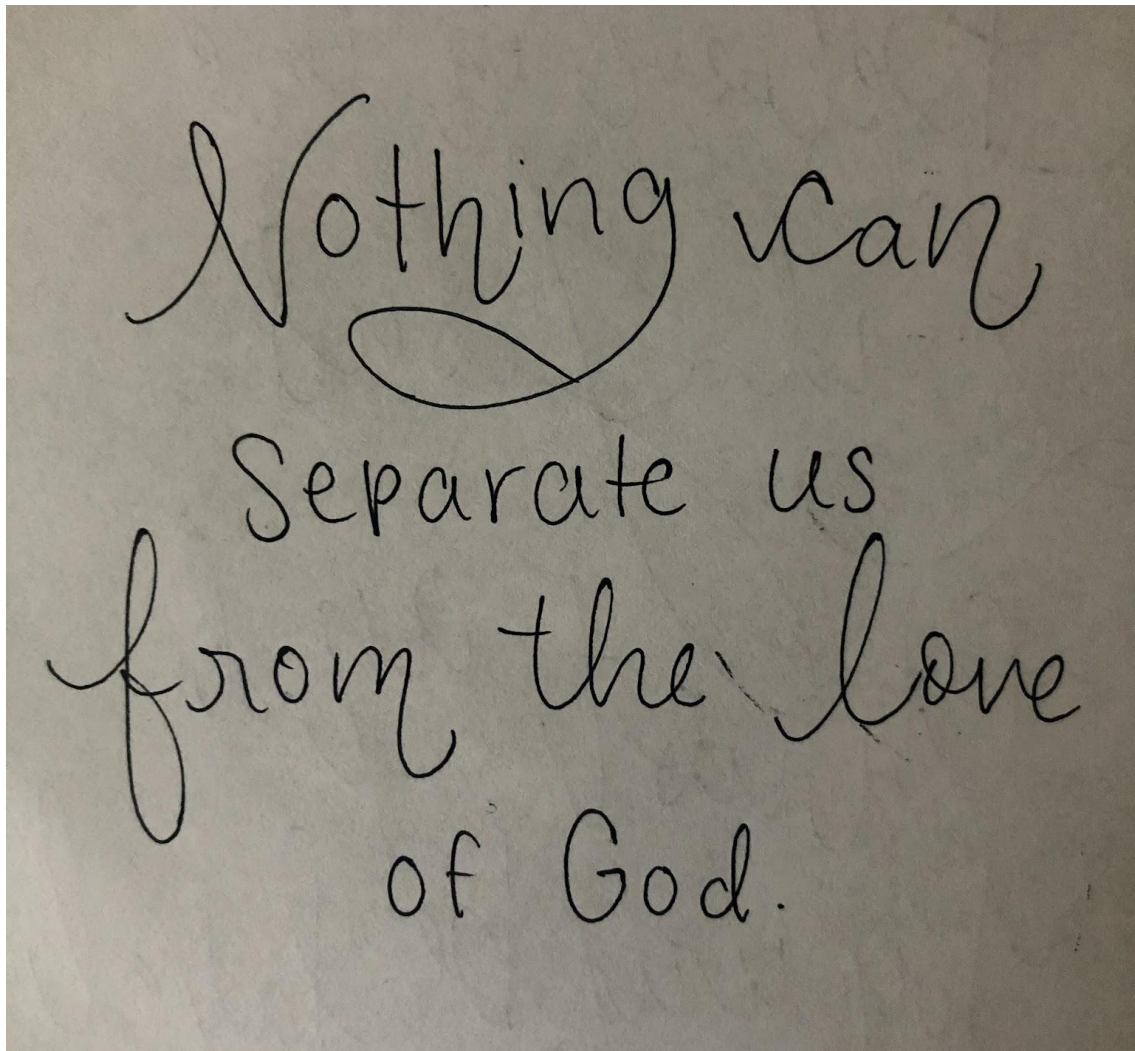 Nothing can
separate us
from the love
of God.